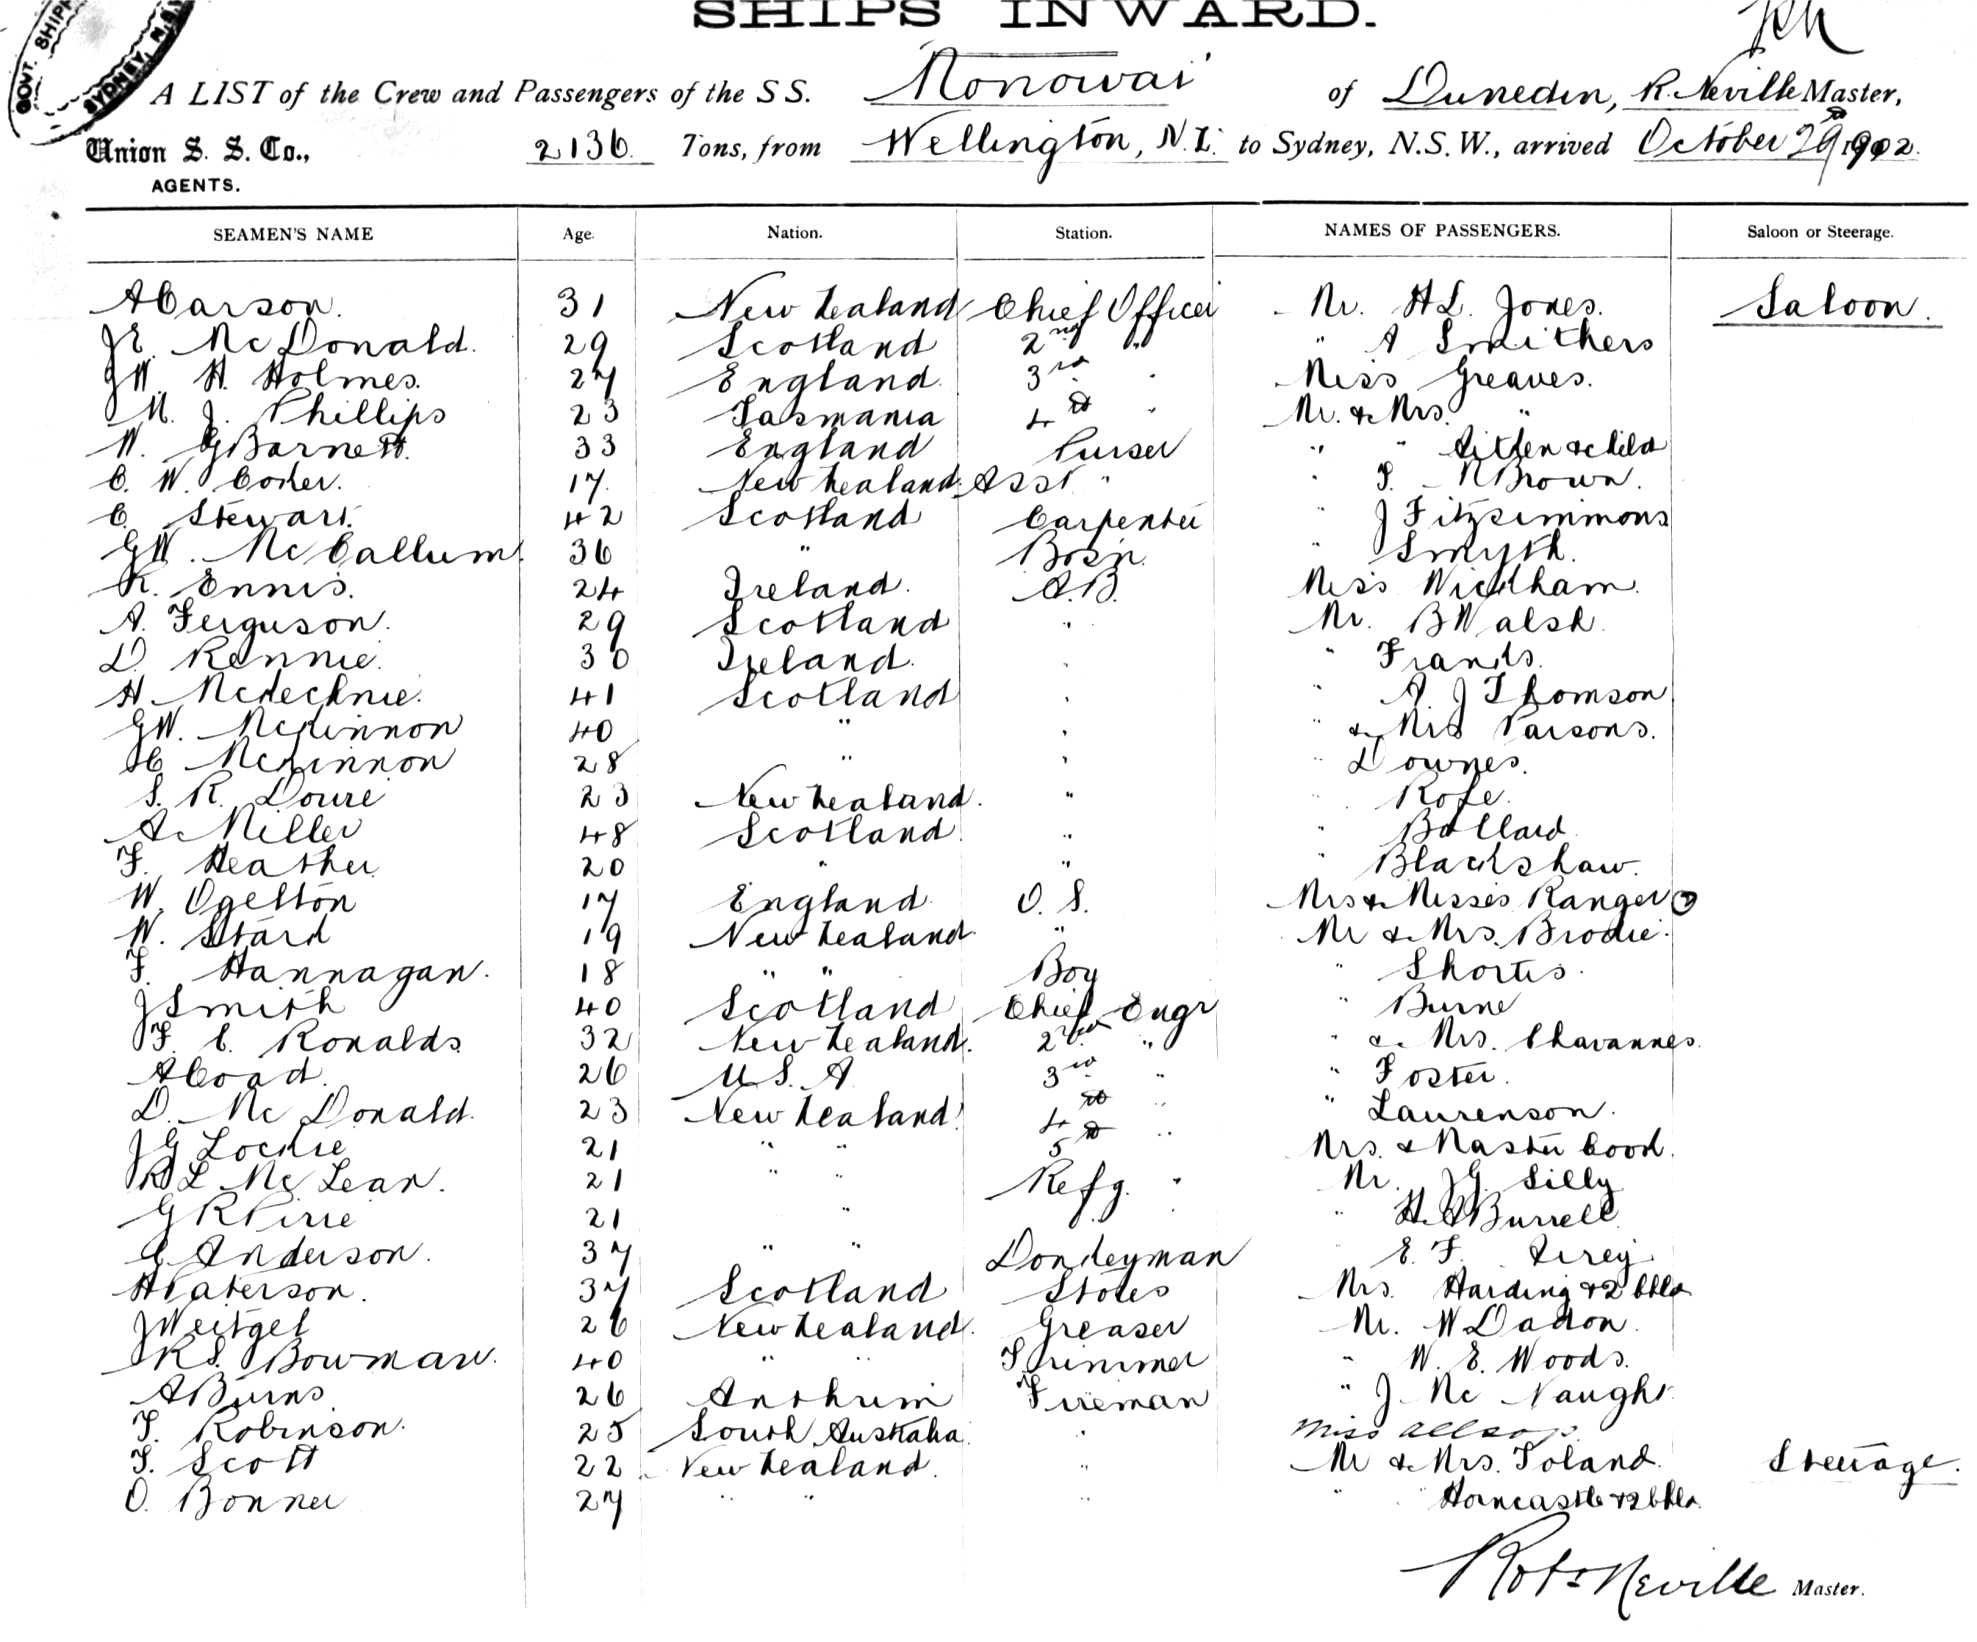 SHIPS INWARD.
GOVT. SHIPP
SYDNEY, N.S.W
A LIST of the Crew and Passengers of the SS. Monowai of Dunedin, R. Neville Master,
Union S. S. Co., 2136 Tons, from Wellington, N.Z. to Sydney, N.S.W., arrived October 29th 1902.
AGENTS.
SEAMEN'S NAME Age. Nation. Station. NAMES OF PASSENGERS. Saloon or Steerage.
A Carson. 31 New Zealand Chief Officer Mr. H L. Jones. Saloon.
J E. McDonald. 29 Scotland 2nd " " A Smithers
J W. H. Holmes. 27 England 3rd " Miss Greaves.
M. J. Phillips 23 Tasmania 4th " Mr. & Mrs. "
W. G Barnett. 33 England Purser " " Aitken & child
C. W. Coker. 17. New Zealand. Asst. " " F. N Brown.
C. Stewart. 42 Scotland Carpenter " J Fitzsimmons
G W. McCallum. 36 " Bosn. " Smyth.
R. Ennis. 24 Ireland. A.B. Miss Wickham.
A. Ferguson. 29 Scotland " Mr. B Walsh.
D. Rennie. 30 Ireland. " " Francis.
H. McKechnie. 41 Scotland " " A. J Thomson
G W. McKinnon 40 " " " & Mrs Parsons.
H McKinnon 28 " " " Downes.
S. R. Doure 23 New Zealand. " " Rofe.
A. Miller 48 Scotland " " Ballard
F. Heather 20 " " " Blackshaw.
W. Ogelton 17 England. O. S. Mrs & Misses Ranger
W. Stard 19 New Zealand " Mr & Mrs. Brodie.
F. Hannagan. 18 " " Boy " Shortis.
J Smith 40 Scotland Chief Engr " Burne
F. C. Ronalds 32 New Zealand. 2nd " " & Mrs. Chavannes.
A Coad. 26 U. S. A 3rd " " Foster.
D. McDonald. 23 New Zealand. 4th " " Laurenson.
J G Lockie 21 " " 5th " Mrs. & Master Cook.
R L McLean. 21 " " Refg. " Mr. J G. Silly
G R Pirie 21 " " H. A Burrell
Anderson. 37 " " Donkeyman E. F. Airey
H Paterson. 37 Scotland Stores Mrs. Harding & 2 chld
J Weitgel 26 New Zealand. Greaser Mr. W Dalton.
R S. Bowman. 40 " " Trimmer " W. E. Woods.
A Burns 26 Anthrim Fireman " J. McNaught
T. Robinson. 25 South Australia. " Miss Allsop.
T. Scott 22 New Zealand. " Mr & Mrs. Toland. Steerage.
O. Bonner 27 " " " " " Horncastle & 2 chld.
Robt Neville Master.